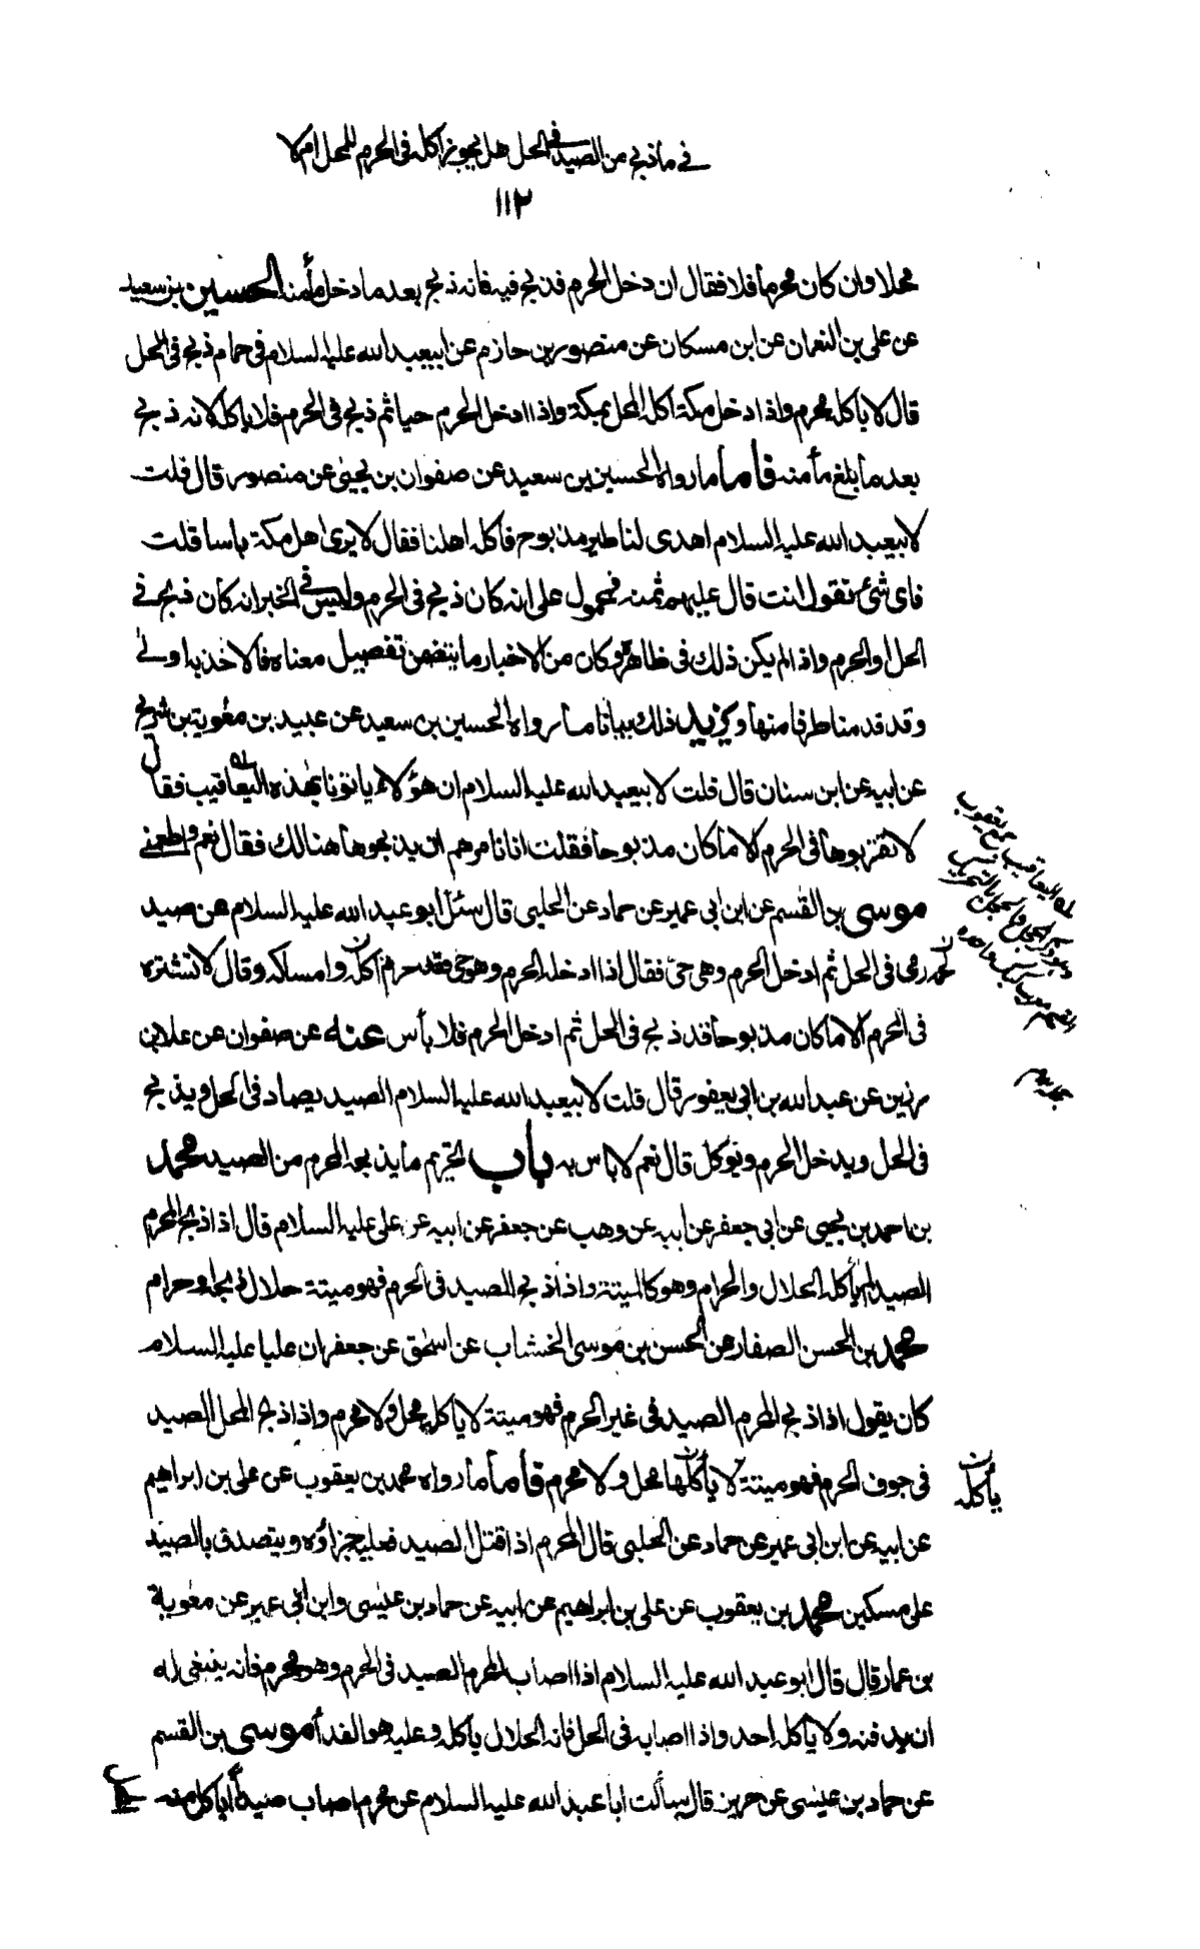 في ما ذبح من الصيد في الحل هل يجوز اكله في الحرم للمحل ام لا
١١٢
محلا وان كان محرما فلا فقال ان دخل الحرم فذبح فيه فانه ذبح بعد ما دخل مأمنه الحسين بن سعيد
عن علي بن النعمان عن ابن مسكان عن منصور بن حازم عن ابيعبد الله عليه السلام في حمام ذبح في الحل
قال لا يأكله محرم واذا دخل مكة اكله المحل بمكة واذا ادخل الحرم حيا ثم ذبح في الحرم فلا يأكله لانه ذبح
بعد ما بلغ مأمنه فاما ما رواه الحسين بن سعيد عن صفوان بن يحيى عن منصور قال قلت
لابيعبد الله عليه السلام اهدى لنا طير مذبوح فأكله اهلنا فقال لا يرى اهل مكة باسا قلت
فاي شئ تقول انت قال عليهم ثمنه فمحمول على انه كان ذبح في الحرم وليس في الخبر انه كان ذبح في
الحل او الحرم واذا لم يكن ذلك في ظاهره وكان من الاخبار ما يتضمن تفصيل معناه فالاخذ به اولى
وقد قدمنا طرفا منها ويزيد ذلك بيانا ما رواه الحسين بن سعيد عن عبيد بن معوية بن شريح
عن ابيه عن ابن سنان قال قلت لابيعبد الله عليه السلام ان هؤلاء يأتونا بهذه اليعاقيب فقال
لا تقربوها في الحرم الا ما كان مذبوحا فقلت انا نامرهم ان يذبحوها هنالك فقال نعم واطعمني
موسى بن القسم عن ابن ابي عمير عن حماد عن الحلبى قال سئل ابو عبد الله عليه السلام عن صيد
رمى في الحل ثم ادخل الحرم وهى حي فقال اذا ادخله الحرم وهو حي فقد حرم اكله وامساكه وقال لا تشتره
في الحرم الا ما كان مذبوحا قد ذبح في الحل ثم ادخل الحرم فلا بأس عنه عن صفوان عن علا بن
رزين عن عبد الله بن ابي يعفور قال قلت لابيعبد الله عليه السلام الصيد يصاد في الحل ويذبح
في الحل ويدخل الحرم ويؤكل قال نعم لا باس به باب تحريم ما يذبحه المحرم من الصيد محمد
بن احمد بن يحيى عن ابي جعفر عن ابيه عن وهب عن جعفر عن ابيه عن على عليه السلام قال اذا ذبح المحرم
الصيد لم يأكله الحلال والحرام وهو كالميتة واذا ذبح الصيد في الحرم فهو ميتة حلال ذبحه او حرام
محمد بن الحسن الصفار عن الحسن بن موسى الخشاب عن اسحق عن جعفر ان عليا عليه السلام
كان يقول اذا ذبح المحرم الصيد في غير الحرم فهو ميتة لا يأكله محل ولا محرم واذا ذبح المحل الصيد
في جوف الحرم فهو ميتة لا يأكلها محل ولا محرم فأما ما رواه محمد بن يعقوب عن على بن ابراهيم
يأكله
عن ابيه عن ابن ابي عمير عن حماد عن الحلبى قال المحرم اذا قتل الصيد فعليه جزاؤه ويتصدق بالصيد
على مسكين محمد بن يعقوب عن على بن ابراهيم عن ابيه عن حماد بن عيسى وابن ابي عمير عن معوية
بن عمار قال قال ابو عبد الله عليه السلام اذا اصاب المحرم الصيد في الحرم وهو محرم فانه ينبغي له
ان يدفنه ولا يأكله احد واذا اصابه في الحل فان الحلال يأكله وعليه هو الفدأ موسى بن القسم
عن حماد بن عيسى عن حريز قال سألت ابا عبد الله عليه السلام عن محرم اصاب صيدا أيأكل منه